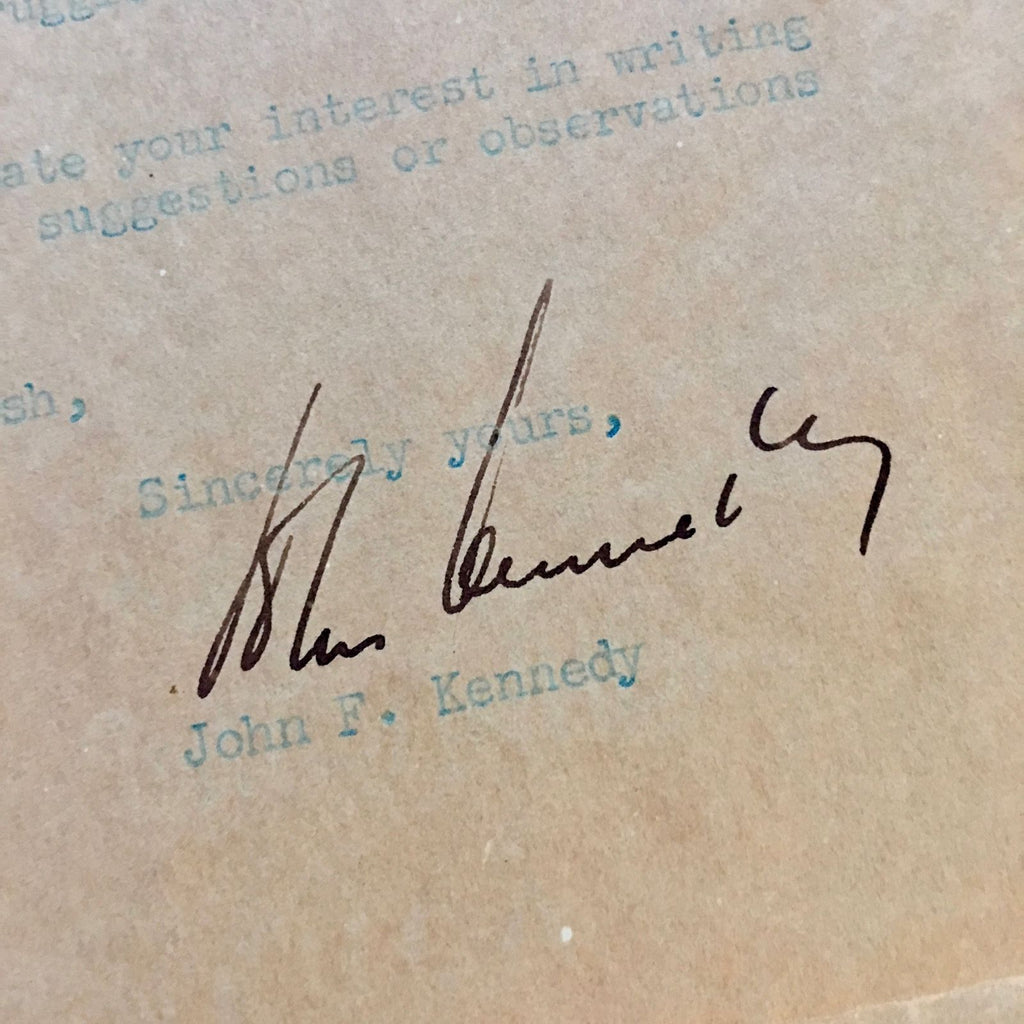 ate your interest in writing
suggestions or observations
sh,
Sincerely yours,
John Kennedy
John F. Kennedy